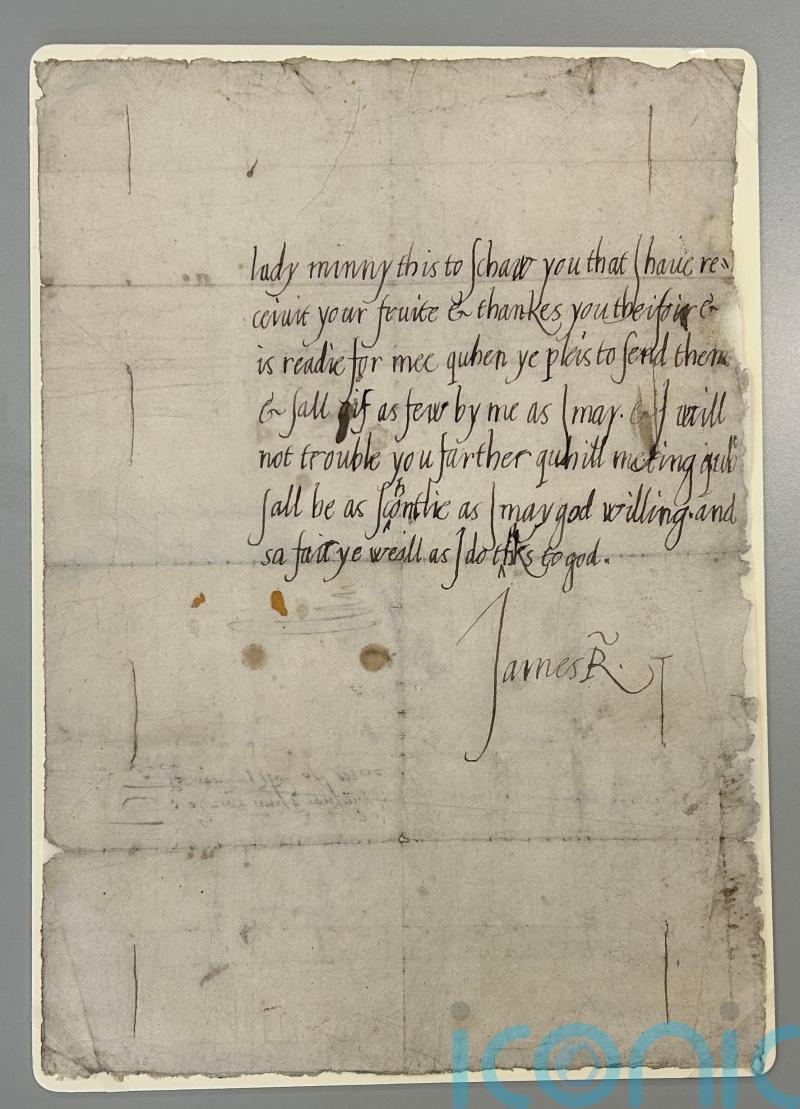 lady minny this to schaw you that I haue re-
ceiuit your fruite & thankes you theirfoir &
is readie for mee quhen ye pleis to send them
& sall gif as few by me as I may. & I will
not trouble you farther quhill meting quhilk
sall be as schortlie as I may god willing. and
sa fair ye weill as I do thks to god.
James R.
iconic